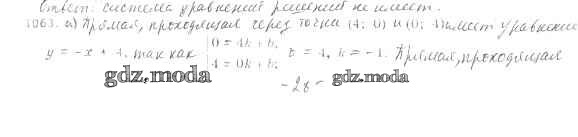 Ответ: система уравнений решений не имеет.
1063. а) Прямая, проходящая через точки (4; 0) и (0; 4) имеет уравнение
y = -x + 4, так как { 0 = 4k + b; 4 = 0k + b; b = 4, k = -1. Прямая, проходящая
gdz.moda gdz.moda
- 28 -